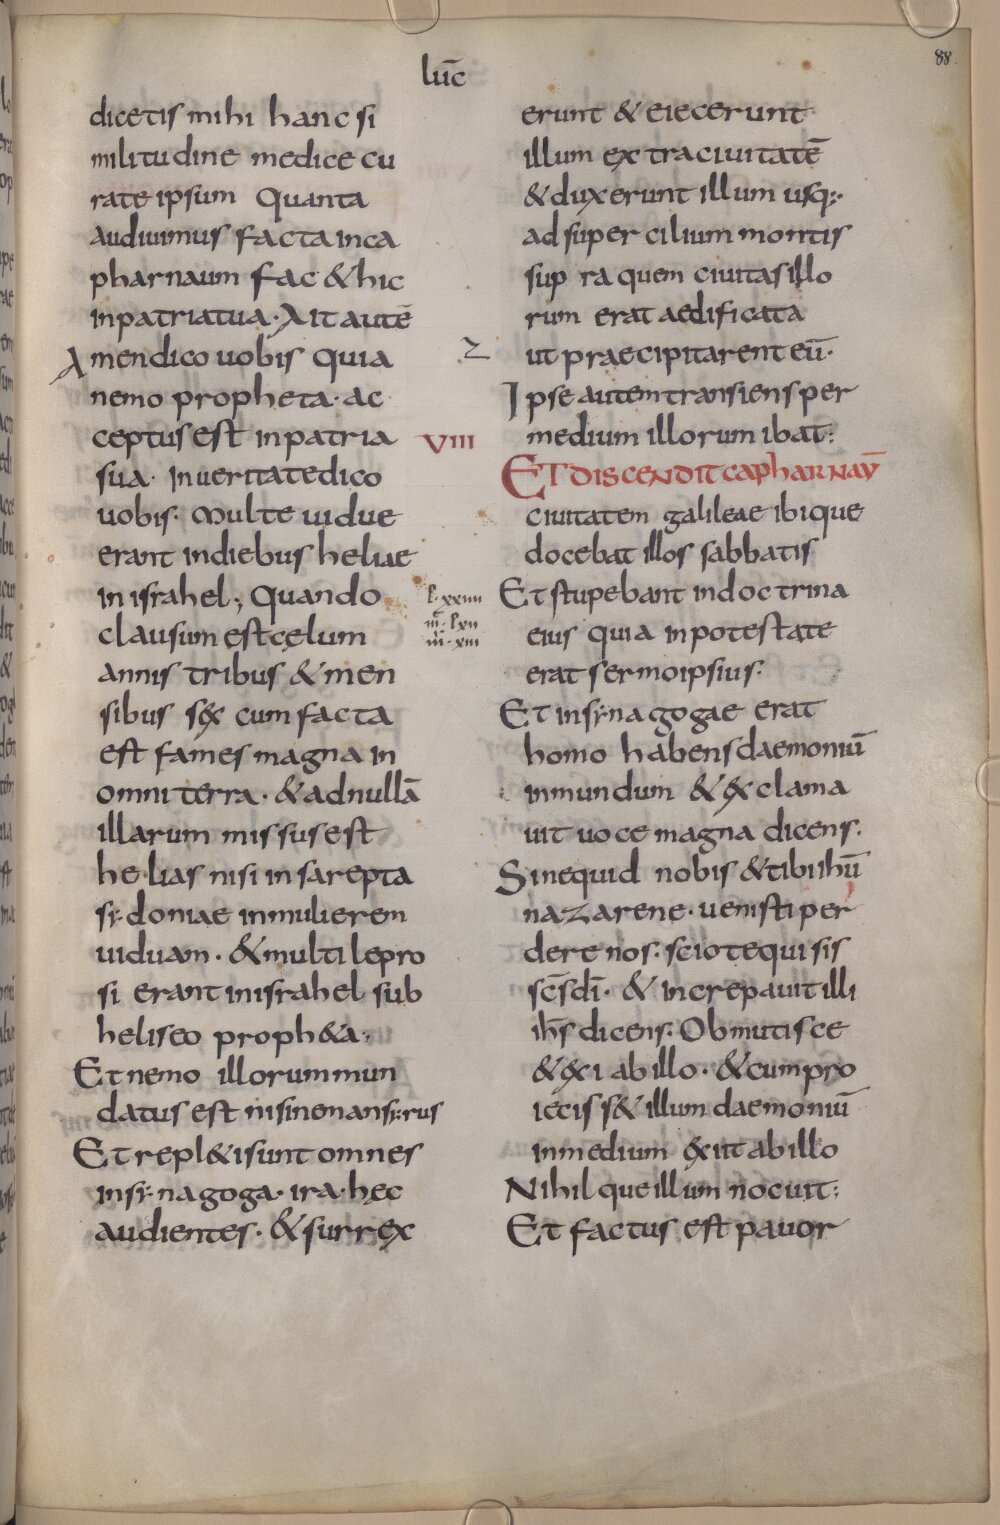 lūc
88
dicetis mihi hanc si
militudine medice cu
rate ipsum Quanta
audiuimus facta inca
pharnaum fac & hic
inpatriatua · Ait autē
Amendico uobis quia
nemo propheta · ac
ceptus est inpatria
sua · In ueritate dico
uobis · Multe uidue
erant indiebus heliae
in israhel ; Quando
clausum est celum
annis tribus & men
sibus sex cum facta
est fames magna in
omni terra · & ad nullā
illarum missus est
helias nisi in sarepta
sydoniae inmulierem
uiduam · & multi lepro
si erant inisrahel sub
heliseo proph&a ;
Et nemo illorum mun
datus est nisi neman syrus
Et repl&i sunt omnes
insynagoga · ira · hęc
audientes · & surrex
erunt & eiecerunt
illum extra ciuitatē
& duxerunt illum usq;
ad supercilium montis
sup ra quem ciuitas illo
rum erat aedificata
ut praecipitarent eū ·
Ipse autem transiens per
medium illorum ibat :
VIII
ET DISCENDIT CAPHARNAŪ
ciuitatem galileae ibique
docebat illos sabbatis
l·xxiiii
m̄·lxii
m̄·xiii
Et stupebant indoctrina
eius quia inpotestate
erat sermo ipsius ·
Et insynagogae erat
homo habens daemoniū
inmundum & exclama
uit uoce magna dicens ·
Sine quid nobis & tibi ihū
nazarene · uenisti per
dere nos · scio te qui sis
sc̄s dī · & increpauit illi
ih̄s dicens · Obmutisce
& exi ab illo · & cum pro
iecis s& illum daemoniū
inmedium exiit ab illo
Nihilque illum nocuit :
Et factus est pauor